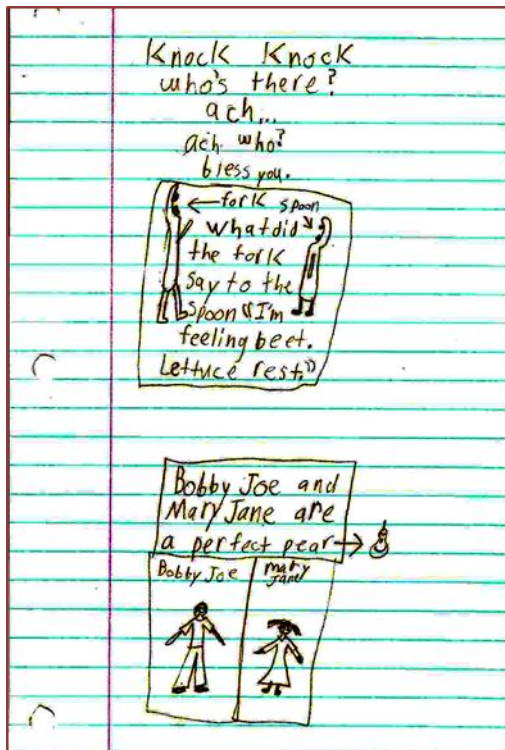 Knock Knock
who's there?
ach...
ach who?
bless you.
←fork spoon
what did
the fork
say to the
spoon "I'm
feeling beet.
Lettuce rest."
Bobby Joe and
Mary Jane are
a perfect pear→
Bobby Joe
mary
jane